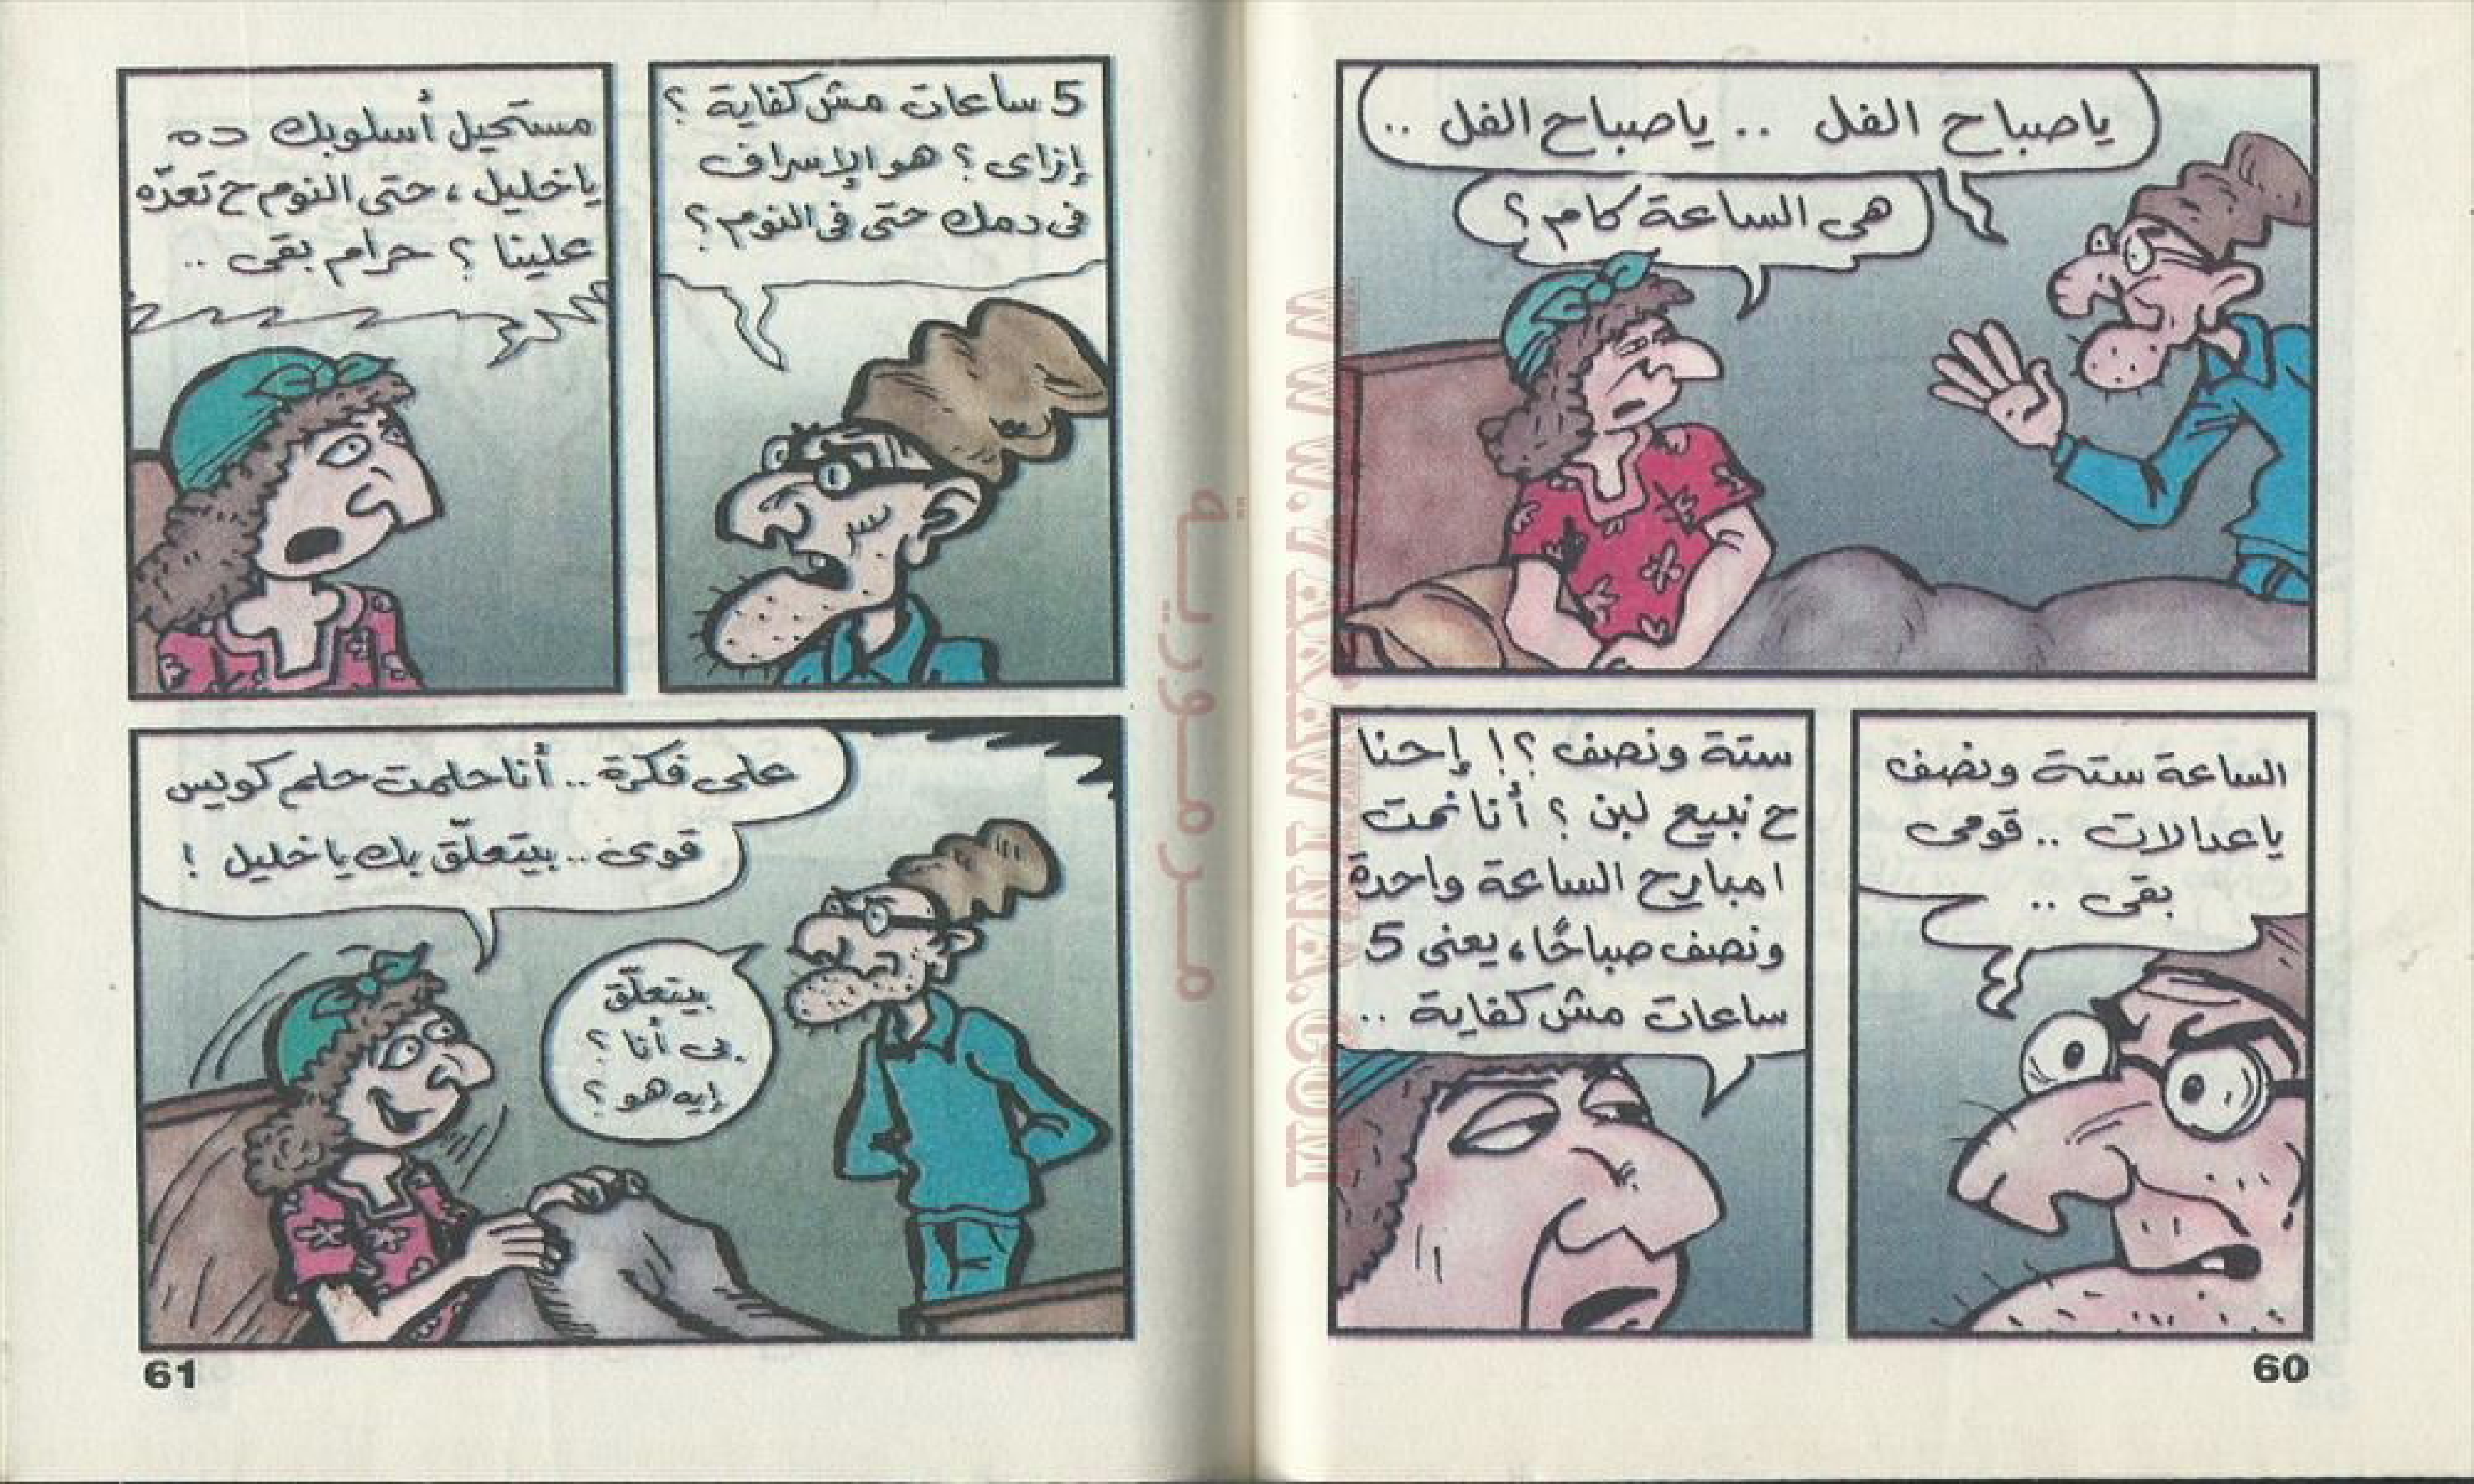 ياصباح الفل .. ياصباح الفل ..
هى الساعة كام ؟
الساعة ستة ونصف
ياعدالات .. قومى
بقى ..
ستة ونصف ؟! إحنا
ح نبيع لبن ؟ أنا نمت
امبارح الساعة واحدة
ونصف صباحًا، يعنى 5
ساعات مش كفاية ..
60
5 ساعات مش كفاية ؟
إزاى ؟ هو الإسراف
فى دمك حتى فى النوم ؟
مستحيل أسلوبك ده
ياخليل ، حتى النوم ح تعدّه
علينا ؟ حرام بقى ..
على فكرة .. أنا حلمت حلم كويس
قوى .. بيتعلّق بك ياخليل !
بيتعلّق
بى أنا ؟
إيه هو ؟
61
مرمورية